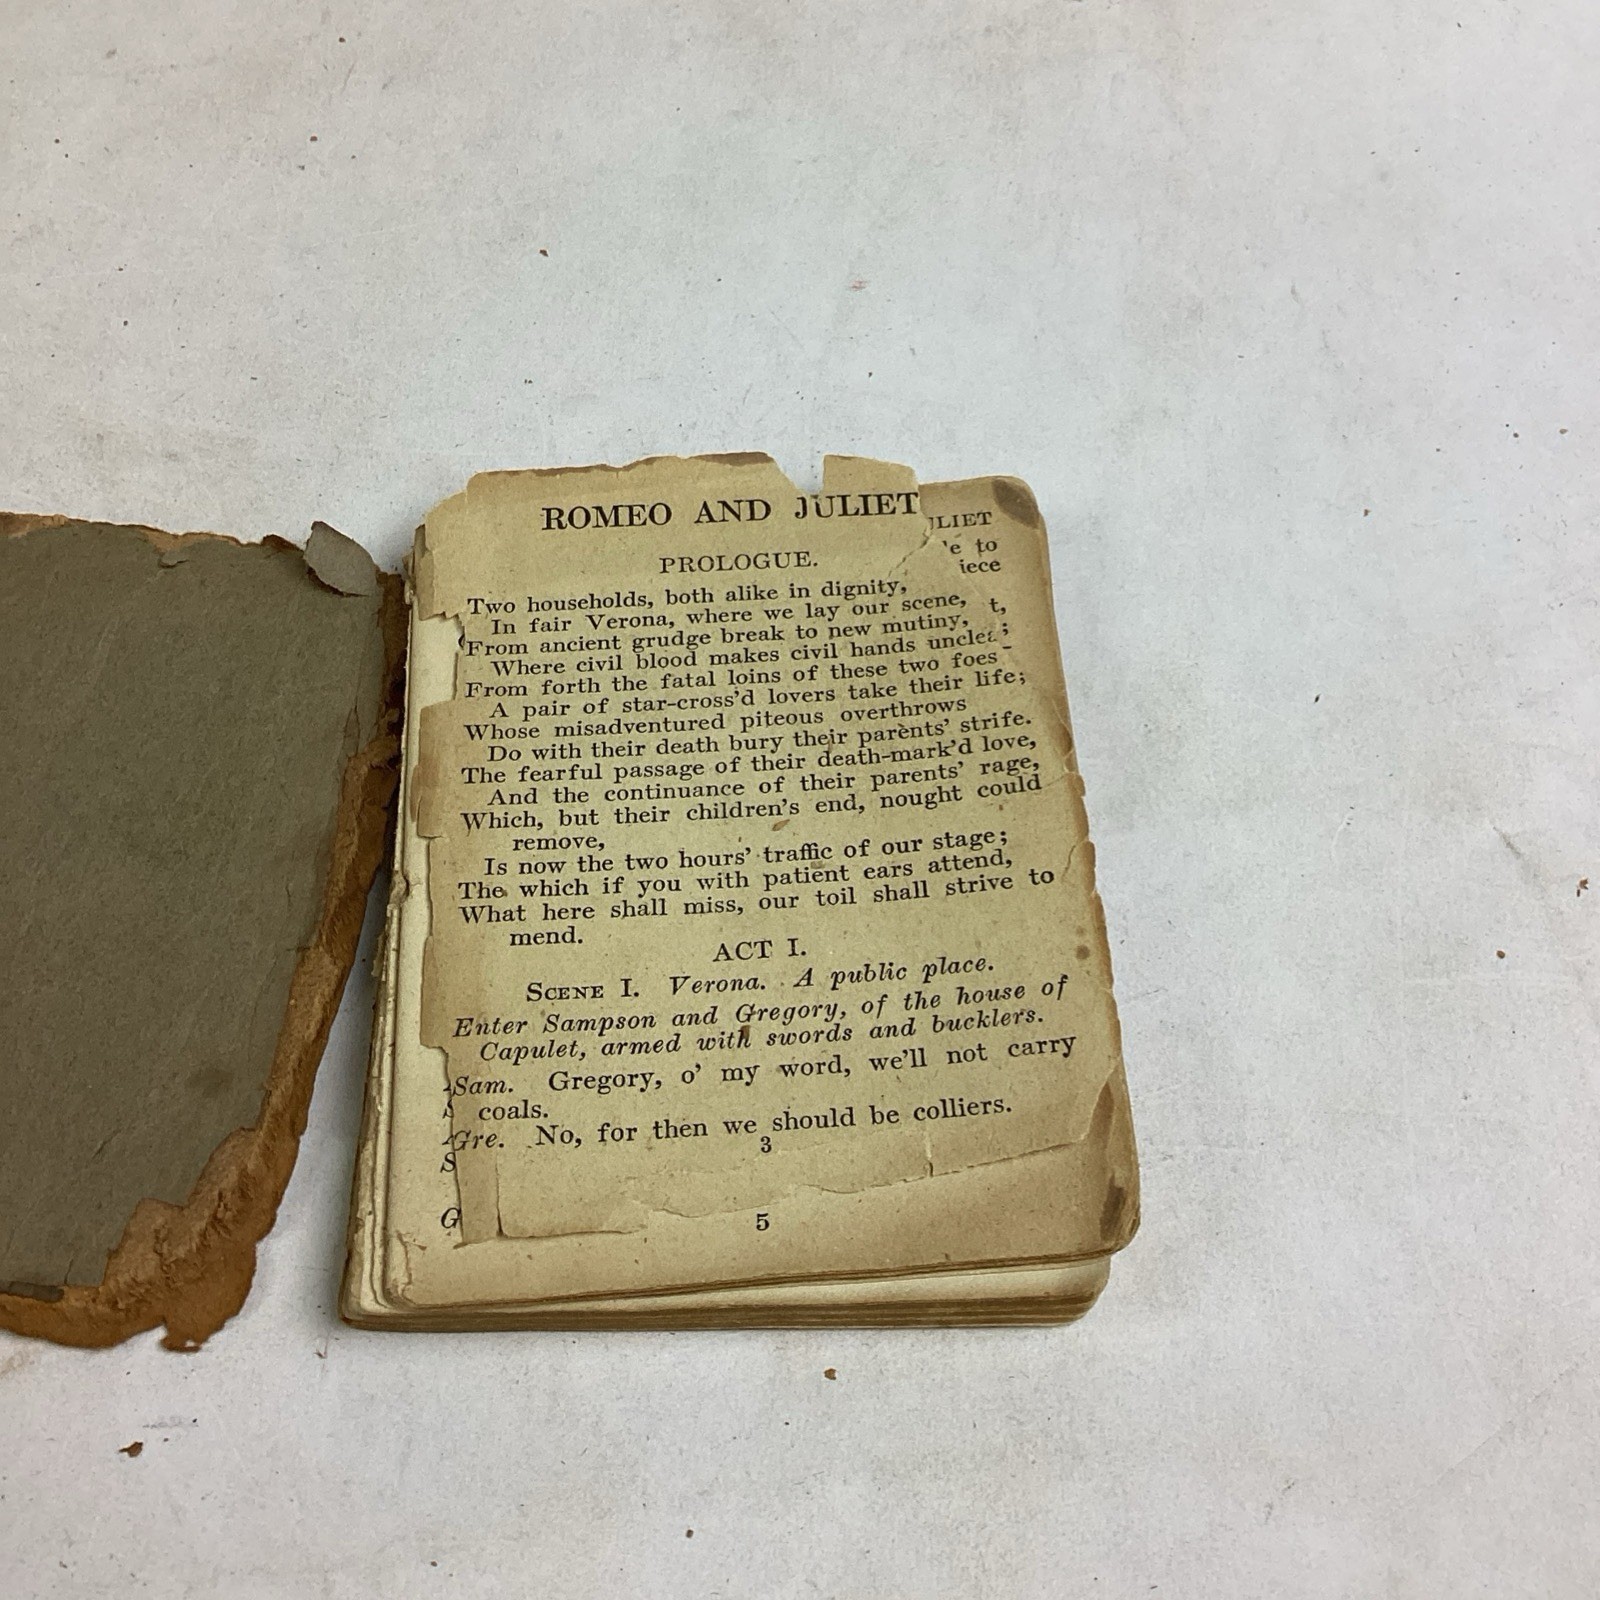 ROMEO AND JULIET
PROLOGUE.
Two households, both alike in dignity,
In fair Verona, where we lay our scene,
From ancient grudge break to new mutiny,
Where civil blood makes civil hands unclea
From forth the fatal loins of these two foes
A pair of star-cross'd lovers take their life;
Whose misadventured piteous overthrows
Do with their death bury their parents' strife.
The fearful passage of their death-mark'd love,
And the continuance of their parents' rage,
Which, but their children's end, nought could
remove,
Is now the two hours' traffic of our stage;
The which if you with patient ears attend,
What here shall miss, our toil shall strive to
mend.
ACT I.
SCENE I. Verona. A public place.
Enter Sampson and Gregory, of the house of
Capulet, armed with swords and bucklers.
Sam. Gregory, o' my word, we'll not carry
coals.
Gre. No, for then we should be colliers.
3
ULIET
to
iece
t,
;
S
G
5